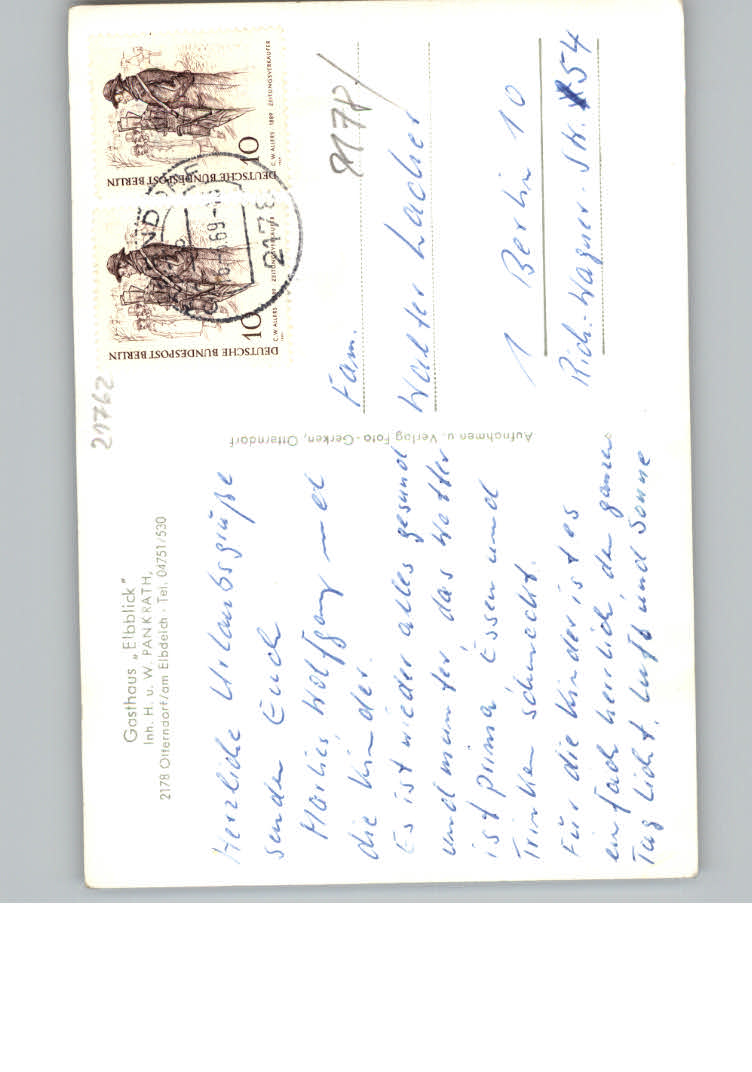 Gasthaus „Elbblick"
Inh. H. u. W. PANKRATH,
2178 Otterndorf/am Elbdeich · Tel. 04751/530
Herzliche Urlaubsgrüße
senden Euch
Marlies, Wolfgang und
die Kinder.
Es ist wieder alles gesund
und munter, das Wetter
ist prima Essen und
Trinken schmeckt.
Für die Kinder ist es
einfach herrlich den ganzen
Tag Licht, Luft und Sonne
Aufnahmen u. Verlag Foto-Gerken, Otterndorf
21762
DEUTSCHE BUNDESPOST BERLIN
10
C.W. ALLERS 1889 ZEITUNGSVERKÄUFER
DEUTSCHE BUNDESPOST BERLIN
10
C.W. ALLERS 1889 ZEITUNGSVERKÄUFER
2178
Fam.
Walter Lacher
1 Berlin 10
Rich.-Wagner-Str. 54